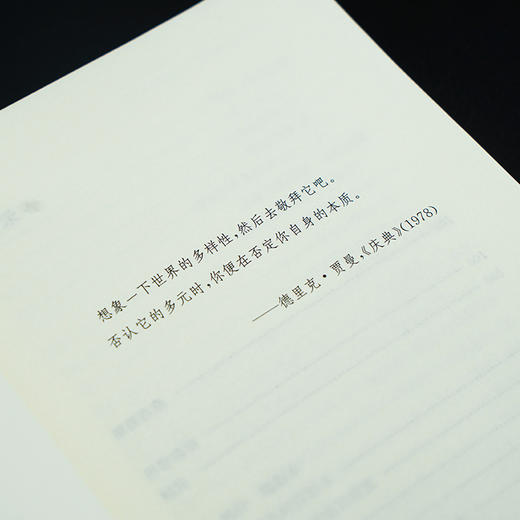 想象一下世界的多样性，然后去敬拜它吧。
否认它的多元时，你便在否定你自身的本质。
——德里克·贾曼，《庆典》(1978)